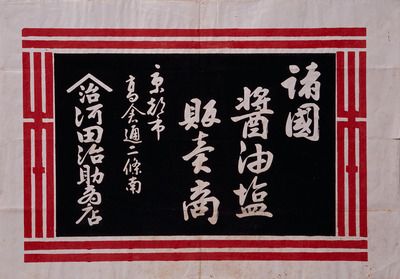 諸國
醬油塩
販売商
京都市
高倉通二條南
治河田治助商店